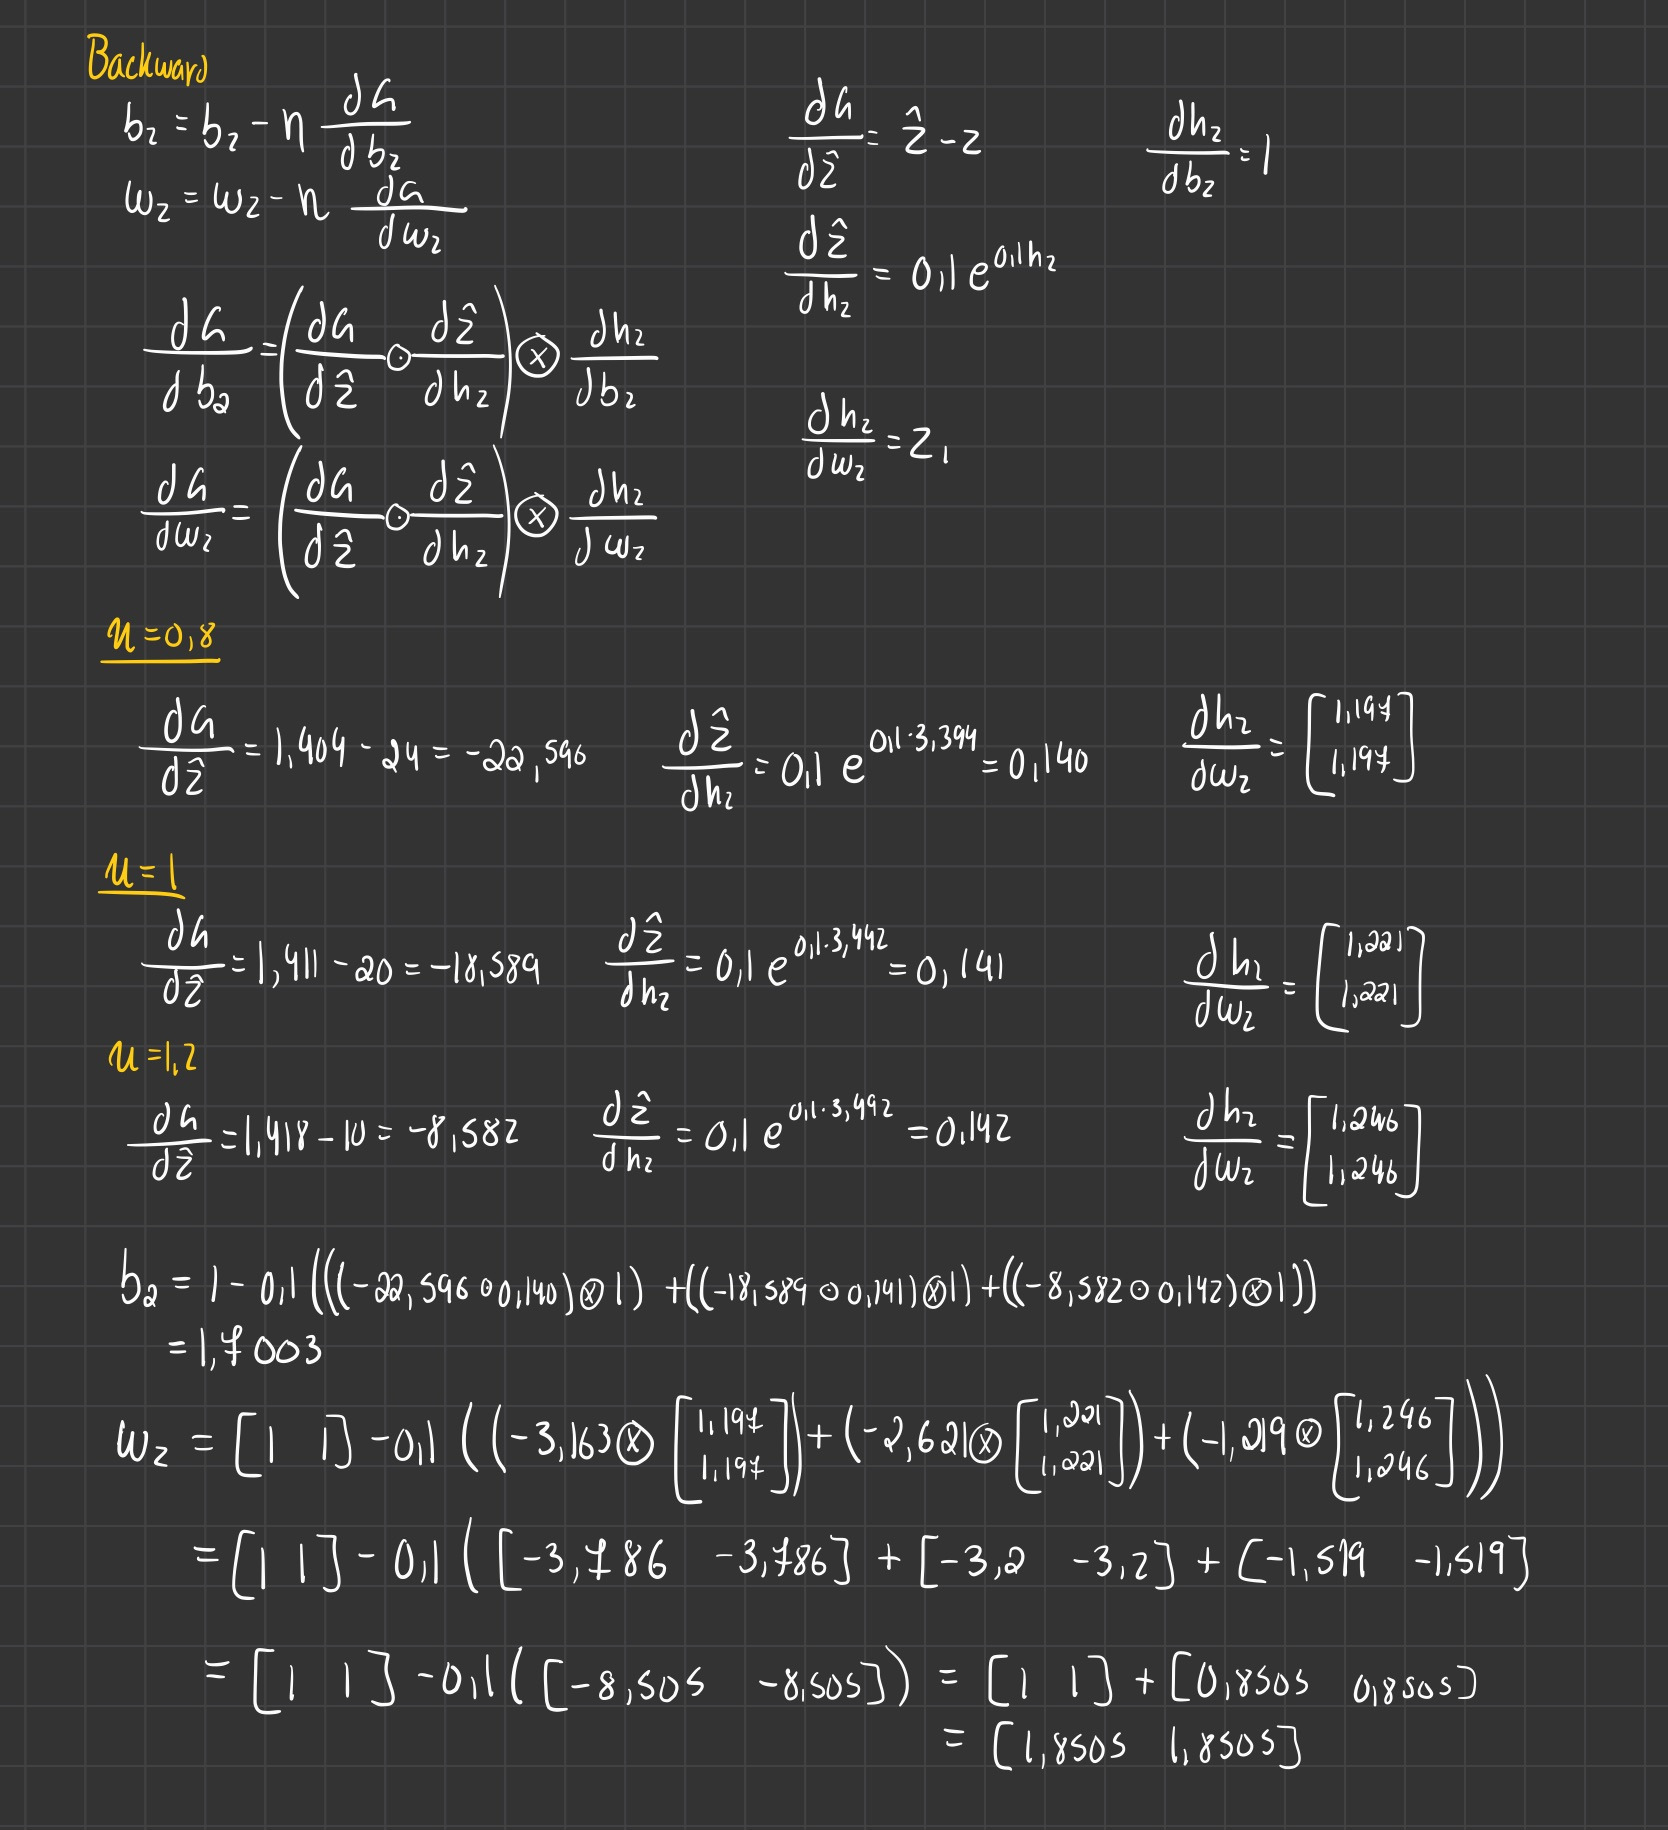 Backward
b₂ = b₂ - η dG/db₂
w₂ = w₂ - η dG/dw₂
dG/dẑ = ẑ - z
dh₂/db₂ = 1
dẑ/dh₂ = 0,1 e^(0,1h₂)
dG/db₂ = (dG/dẑ ⊙ dẑ/dh₂) ⊗ dh₂/db₂
dh₂/dw₂ = z₁
dG/dw₂ = (dG/dẑ ⊙ dẑ/dh₂) ⊗ dh₂/dw₂
u = 0,8
dG/dẑ = 1,404 - 24 = -22,596
dẑ/dh₂ = 0,1 e^(0,1·3,394) = 0,140
dh₂/dw₂ = [1,197
1,197]
u = 1
dG/dẑ = 1,411 - 20 = -18,589
dẑ/dh₂ = 0,1 e^(0,1·3,442) = 0,141
dh₂/dw₂ = [1,221
1,221]
u = 1,2
dG/dẑ = 1,418 - 10 = -8,582
dẑ/dh₂ = 0,1 e^(0,1·3,492) = 0,142
dh₂/dw₂ = [1,246
1,246]
b₂ = 1 - 0,1 (((-22,596 ⊙ 0,140) ⊗ 1) + ((-18,589 ⊙ 0,141) ⊗ 1) + ((-8,582 ⊙ 0,142) ⊗ 1))
= 1,7003
w₂ = [1 1] - 0,1 ((-3,163 ⊗ [1,197 1,197]) + (-2,621 ⊗ [1,221 1,221]) + (-1,219 ⊗ [1,246 1,246])))
= [1 1] - 0,1 ([-3,786 -3,786] + [-3,2 -3,2] + [-1,519 -1,519]
= [1 1] - 0,1 ([-8,505 -8,505]) = [1 1] + [0,8505 0,8505]
= [1,8505 1,8505]